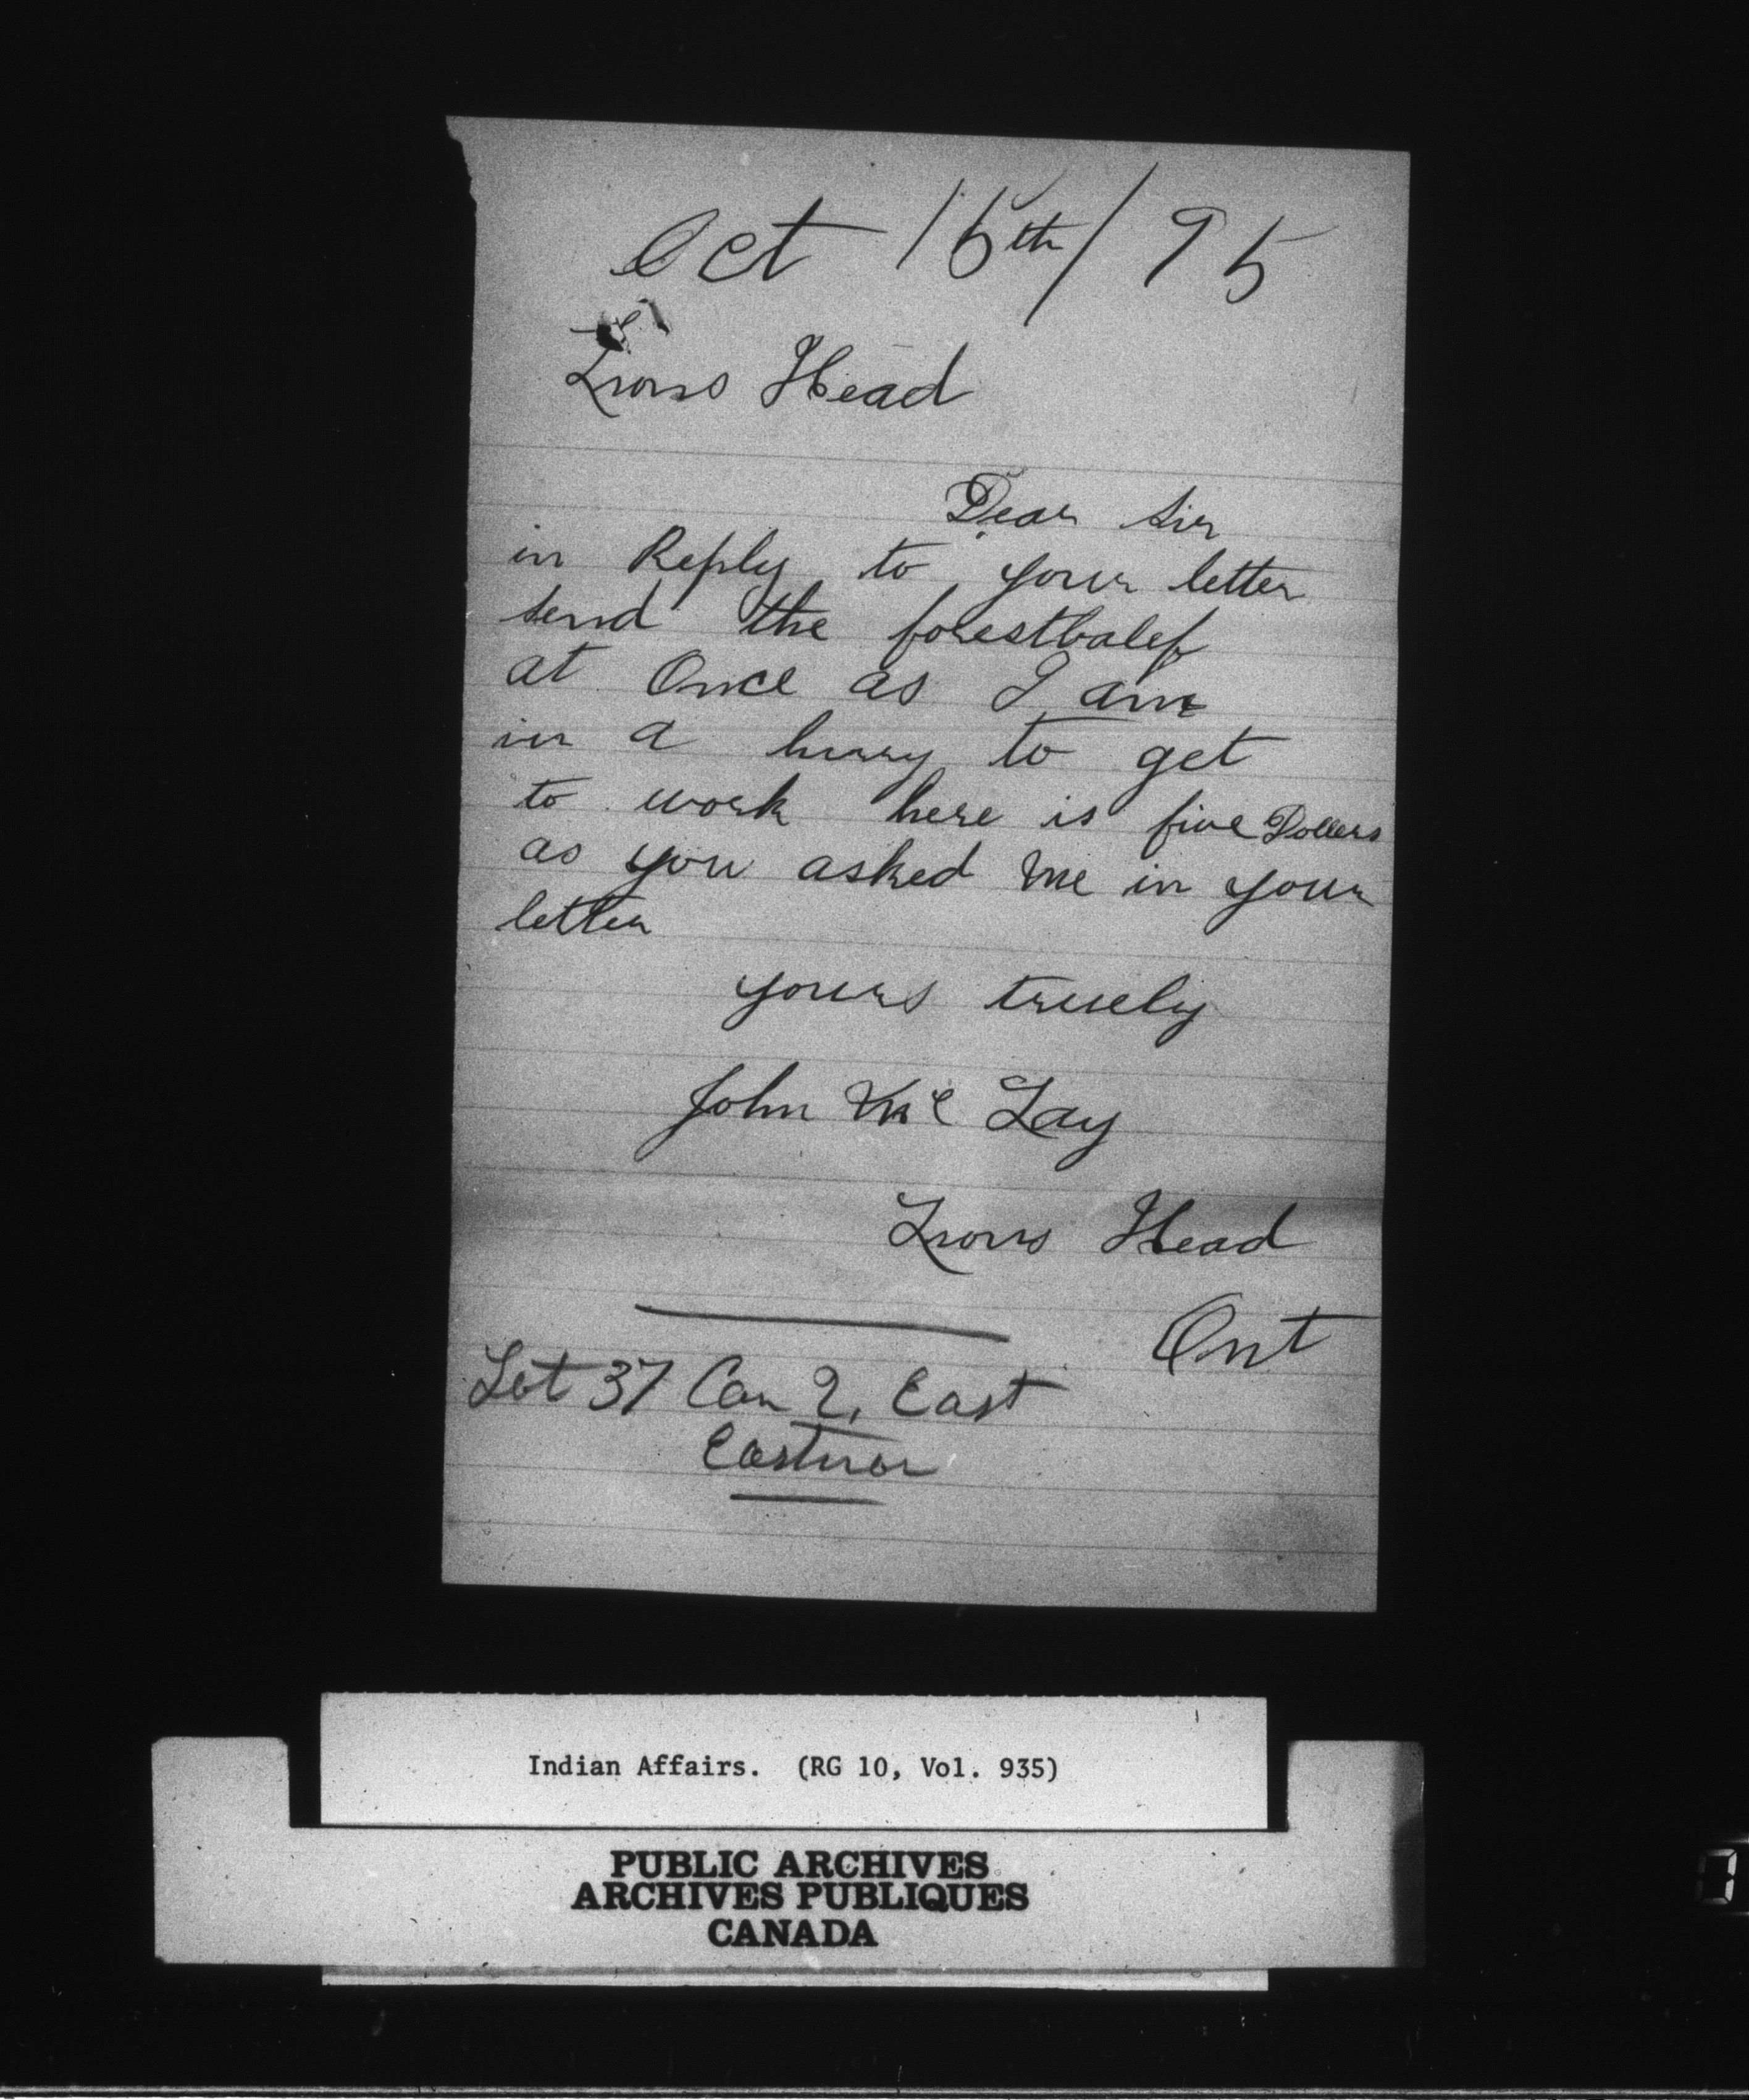 Oct 15th / 95
Lions Head
Dear Sir
in Reply to your letter
send the
at Once as I am
in a hurry to get
to work here is five Dollers
as you asked me in your
letter
yours truely
John Mc Lay
Lions Head
Ont
Lot 37 Con 2, East
Eastnor
Indian Affairs. (RG 10, Vol. 935)
PUBLIC ARCHIVES
ARCHIVES PUBLIQUES
CANADA